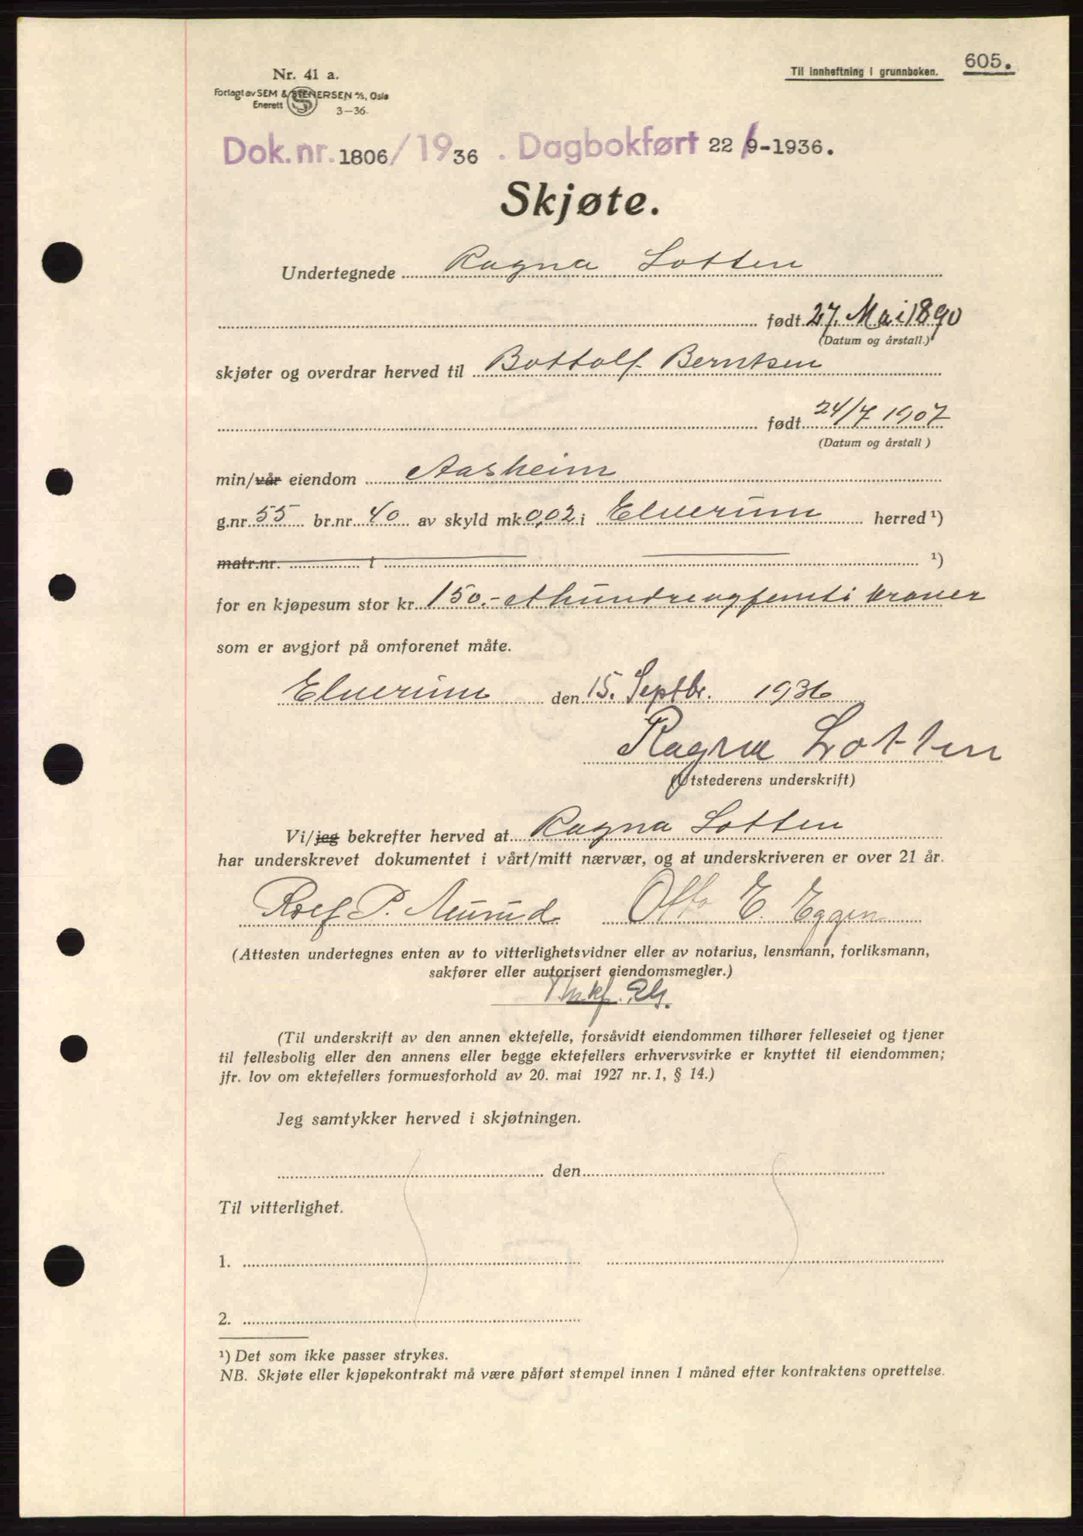 605.
Til innheftning i grunnboken.
Nr. 41 a.
Forlagt av SEM & STENERSEN A/S, Oslo
Enerett 3—36.
Dok.nr. 1806/1936. Dagbokført 22/9-1936.
Skjøte.
Undertegnede Ragna Lotten
født 27. Mai 1890
(Datum og årstall.)
skjøter og overdrar herved til Bottolf Berntsen
født 24/7 1907
(Datum og årstall)
min/vår eiendom Aasheim
g.nr. 55 br.nr. 40 av skyld mk 0,02 i Elverum herred ¹)
matr.nr. i ¹)
for en kjøpesum stor kr. 150.- ethundreogfemti kroner
som er avgjort på omforenet måte.
Elverum den 15. Septbr. 1936
Ragna Lotten
(Utstederens underskrift)
Vi/jeg bekrefter herved at Ragna Lotten
har underskrevet dokumentet i vårt/mitt nærvær, og at underskriveren er over 21 år.
Rolf P. Otto E. Eggen
(Attesten undertegnes enten av to vitterlighetsvidner eller av notarius, lensmann, forliksmann,
sakfører eller autorisert eiendomsmegler.)
(Til underskrift av den annen ektefelle, forsåvidt eiendommen tilhører felleseiet og tjener
til fellesbolig eller den annens eller begge ektefellers erhvervsvirke er knyttet til eiendommen;
jfr. lov om ektefellers formuesforhold av 20. mai 1927 nr. 1, § 14.)
Jeg samtykker herved i skjøtningen.
den
Til vitterlighet.
1.
2.
¹) Det som ikke passer strykes.
NB. Skjøte eller kjøpekontrakt må være påført stempel innen 1 måned efter kontraktens oprettelse.